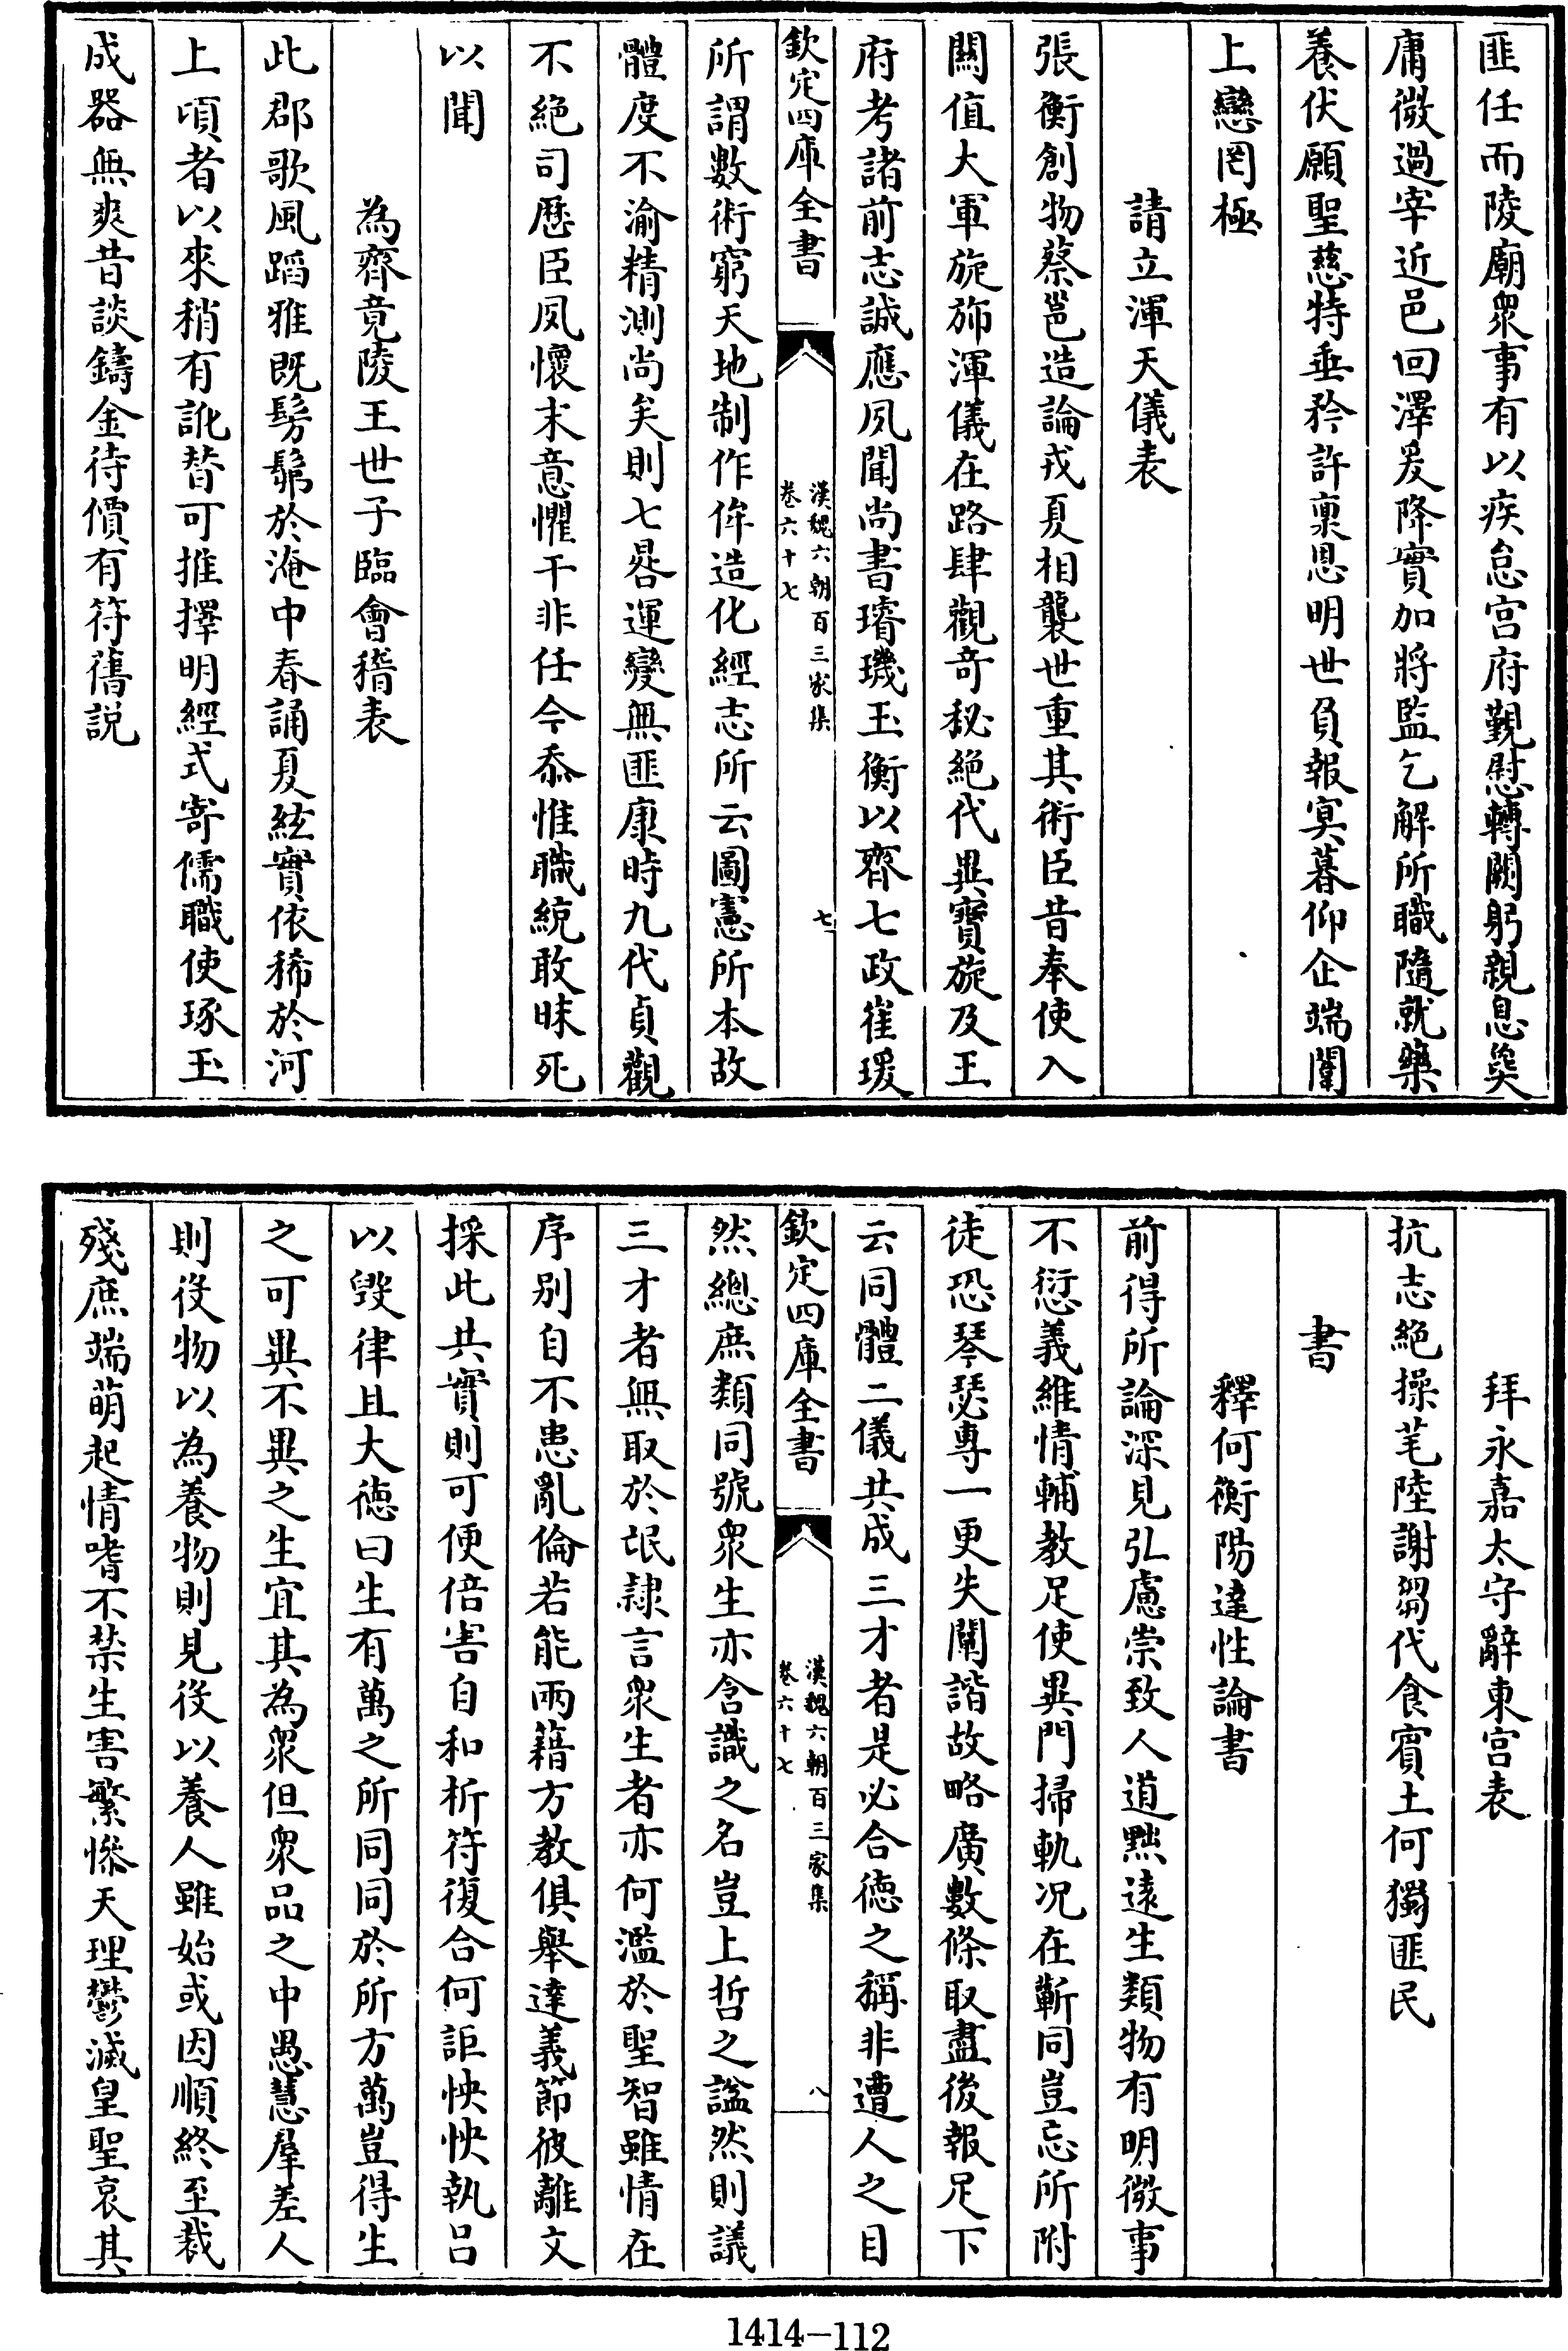 匪任而陵廟衆事有以疾怠宫府覲慰轉闕躬親息奠
庸微過宰近邑回澤爰降實加將監乞解所職隨就藥
養伏願聖慈特垂矜許禀恩明世負報冥暮仰企端闈
上戀罔極
請立渾天儀表
張衡創物蔡邕造論戎夏相襲世重其術臣昔奉使入
關值大軍旋斾渾儀在路肆觀竒秘絶代異寳旋及王
府考諸前志誠應夙聞尚書璿璣玉衡以齊七政崔瑗
欽定四庫全書
漢魏六朝百三家集
卷六十七
七
所謂數術窮天地制作侔造化經志所云圖憲所本故
體度不渝精測尚矣則七晷運變無匪康時九代貞觀
不絶司厯臣夙懷末意懼干非任今忝惟職統敢昧死
以聞
為齊竟陵王世子臨會稽表
此郡歌風蹈雅既髣髴於淹中春誦夏絃實依稀於河
上頃者以來稍有訛替可推擇明經式寄儒職使琢玉
成器無爽昔談鑄金待價有符舊説
拜永嘉太守辭東宫表
抗志絶操芼陸謝芻代食賓土何獨匪民
書
釋何衡陽達性論書
前得所論深見弘慮崇致人道黜遠生類物有明微事
不愆義維情輔教足使異門掃軌况在蘄同豈忘所附
徒恐琴瑟專一更失闡諧故略廣數條取盡後報足下
云同體二儀共成三才者是必合徳之稱非遭人之目
欽定四庫全書
漢魏六朝百三家集
卷六十七
八
然總庶類同號衆生亦含識之名豈上哲之諡然則議
三才者無取於氓隷言衆生者亦何濫於聖智雖情在
序别自不患亂倫若能兩籍方教俱舉達義節彼離文
採此共實則可便倍害自和析符復合何詎怏怏執呂
以毁律且大徳曰生有萬之所同同於所方萬豈得生
之可異不異之生宜其為衆但衆品之中愚慧羣差人
則役物以為養物則見役以養人雖始或因順終至裁
殘庶端萌起情嗜不禁生害繁慘天理鬱滅皇聖哀其
1414-112